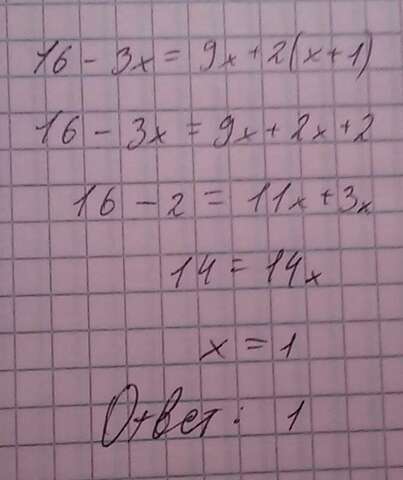 16 - 3x = 9x + 2(x+1)
16 - 3x = 9x + 2x + 2
16 - 2 = 11x + 3x
14 = 14x
x = 1
Ответ: 1